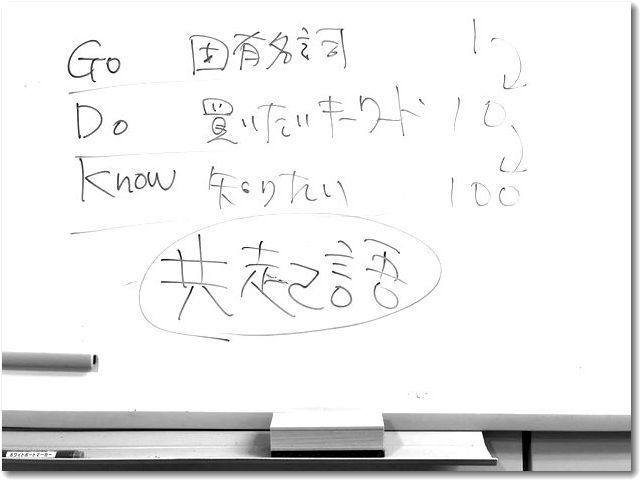 Go 固有名詞 1
Do 買いたいキーワード 10
Know 知りたい 100
共起語
ホワイトボードマーカー